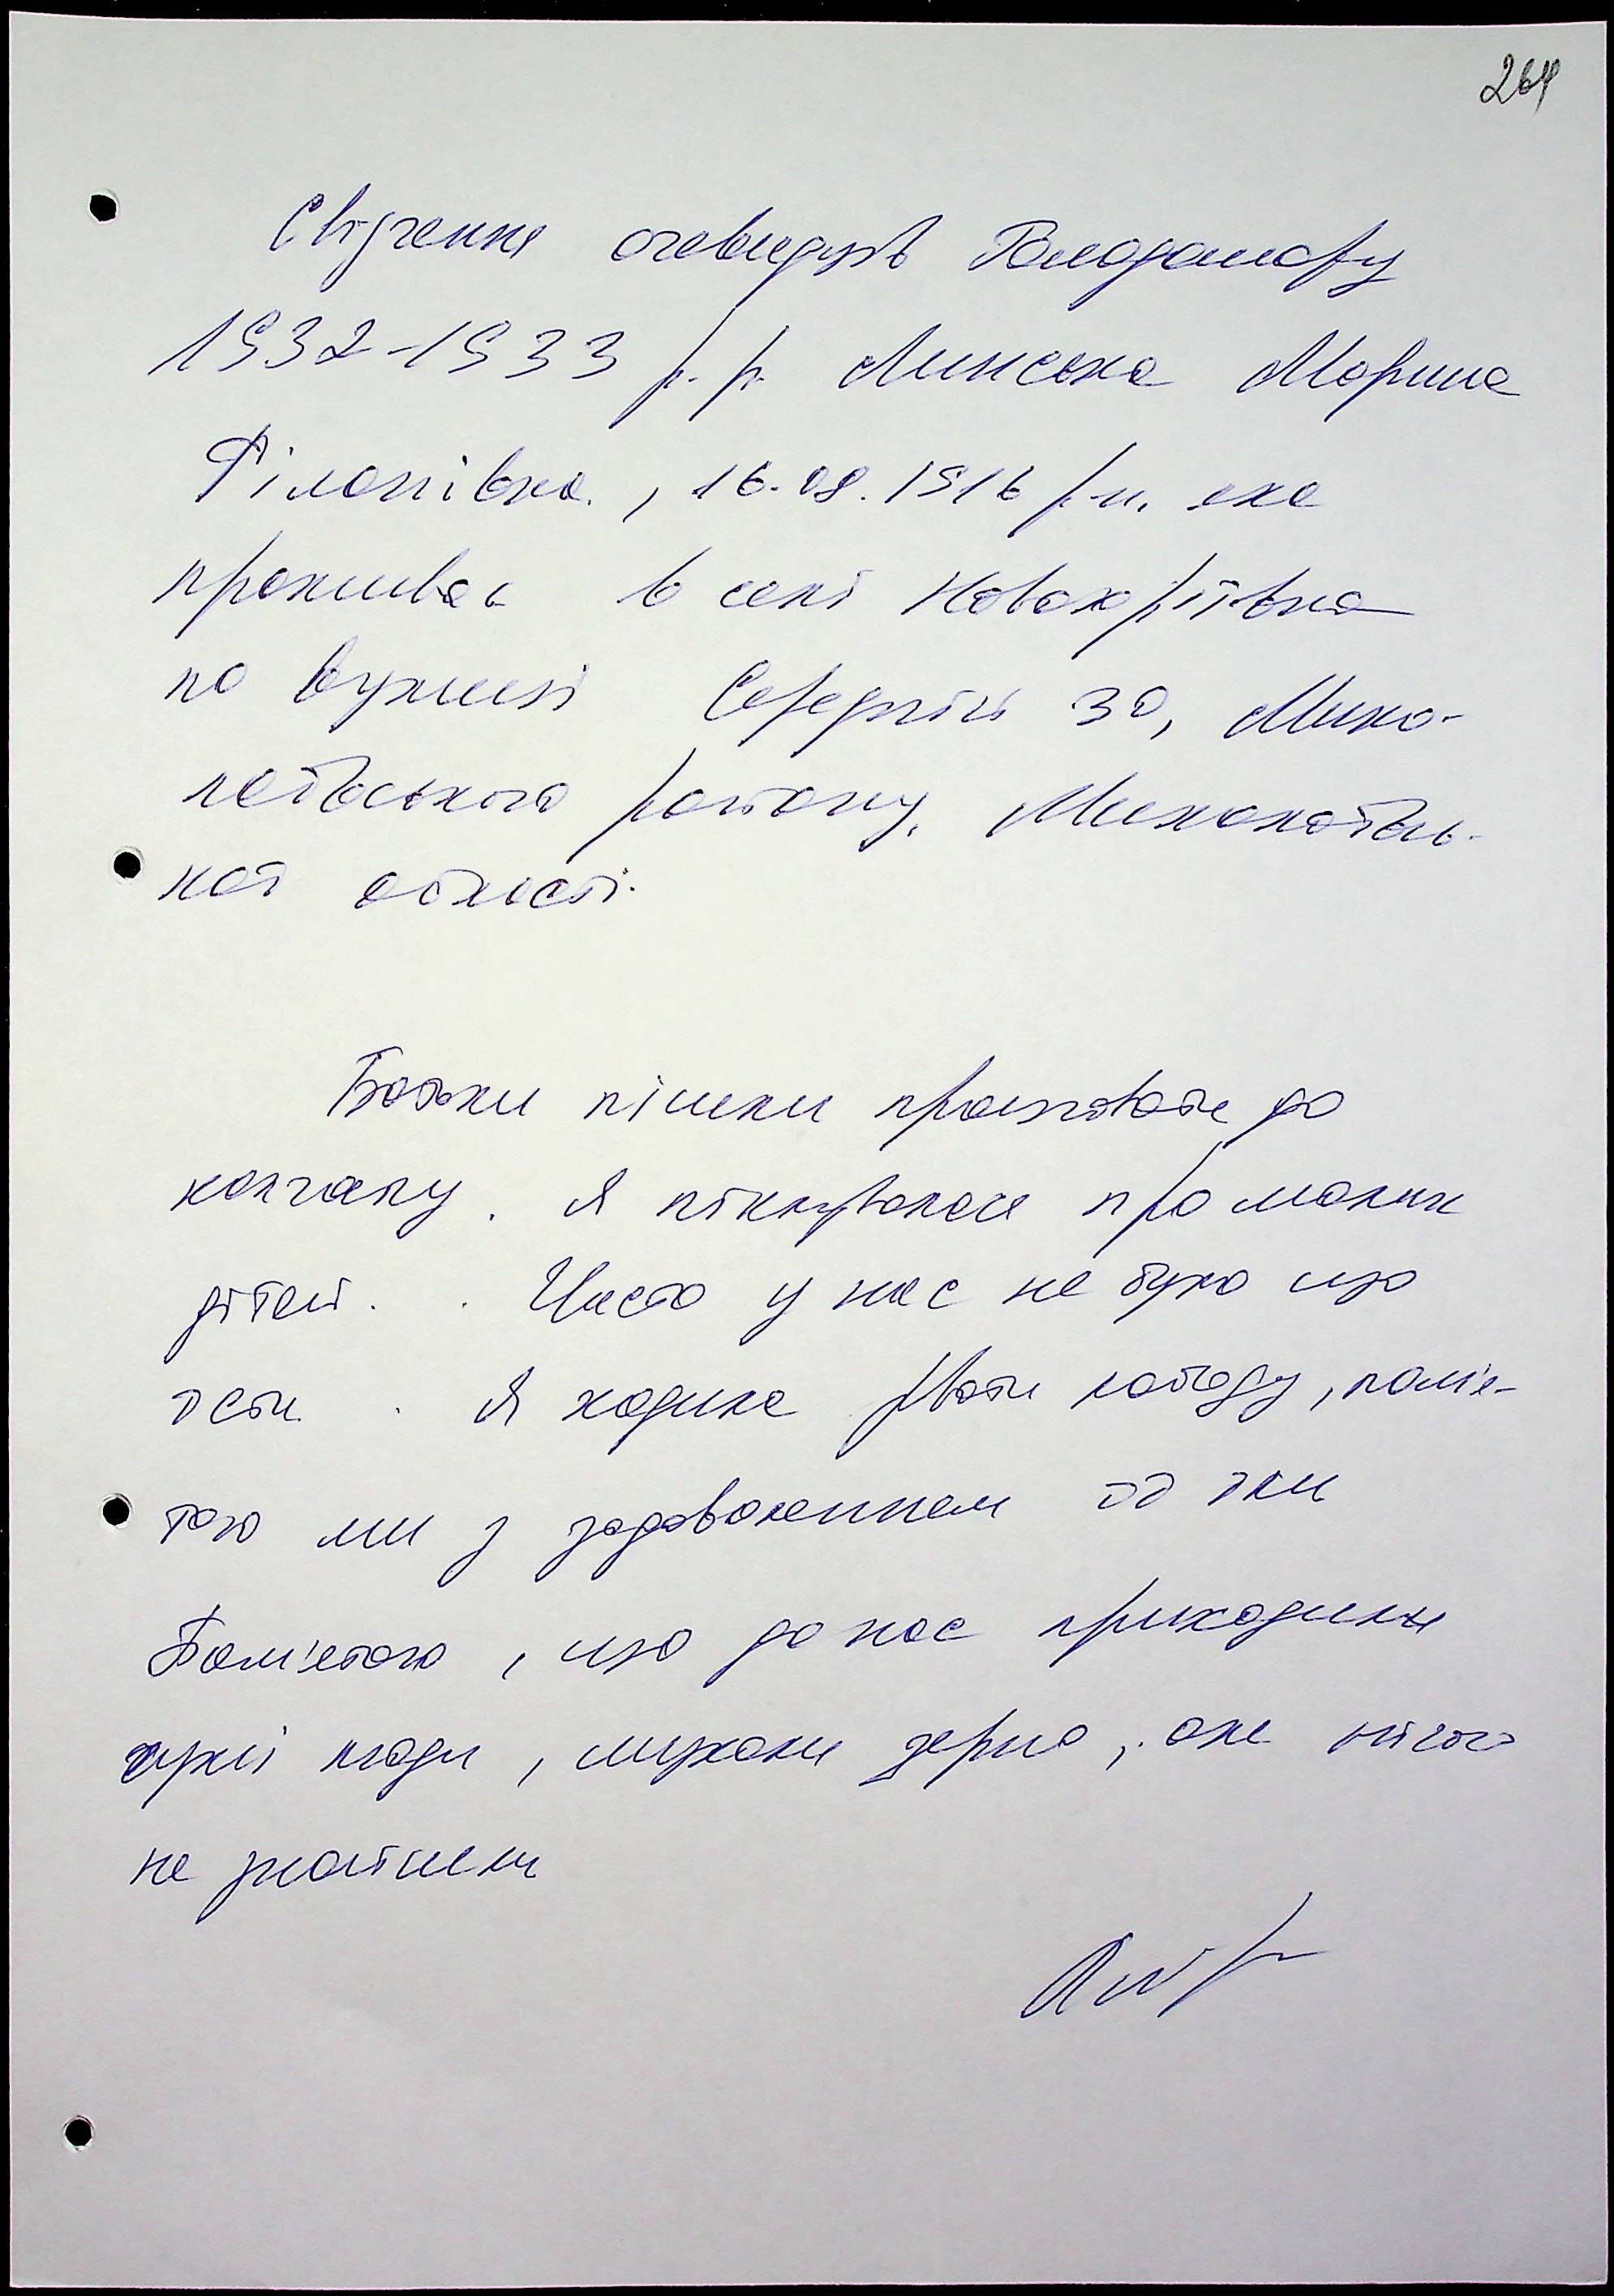 264
Свідчення очевидців Голодомору
1932-1933 р.р. Минська Марина
Філопівна, 16.08.1916 р.н. яка
проживає в селі Новоюріївка
по вулиці Середній 30, Мико-
лаївського району, Миколаївсь-
кої області.
Батьки пішли працювати до
колгоспу. Я піклувалася про малих
дітей. Часто у нас не було що
їсти. Я ходила рвати лободу, пам'я-
таю ми з задоволенням її їли
Пам'ятаю, що до нас приходили
чужі люди, шукали зерно, але нічого
не знайшли